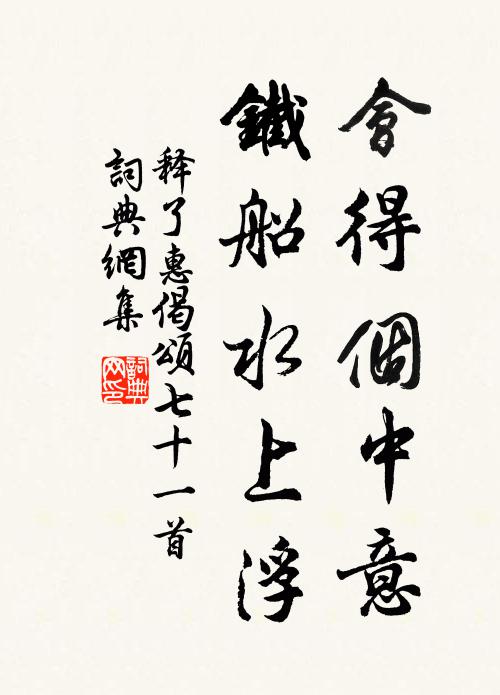 會得個中意
鐵船水上浮
释了惠偈頌七十一首
詞典網集
詞典
网印